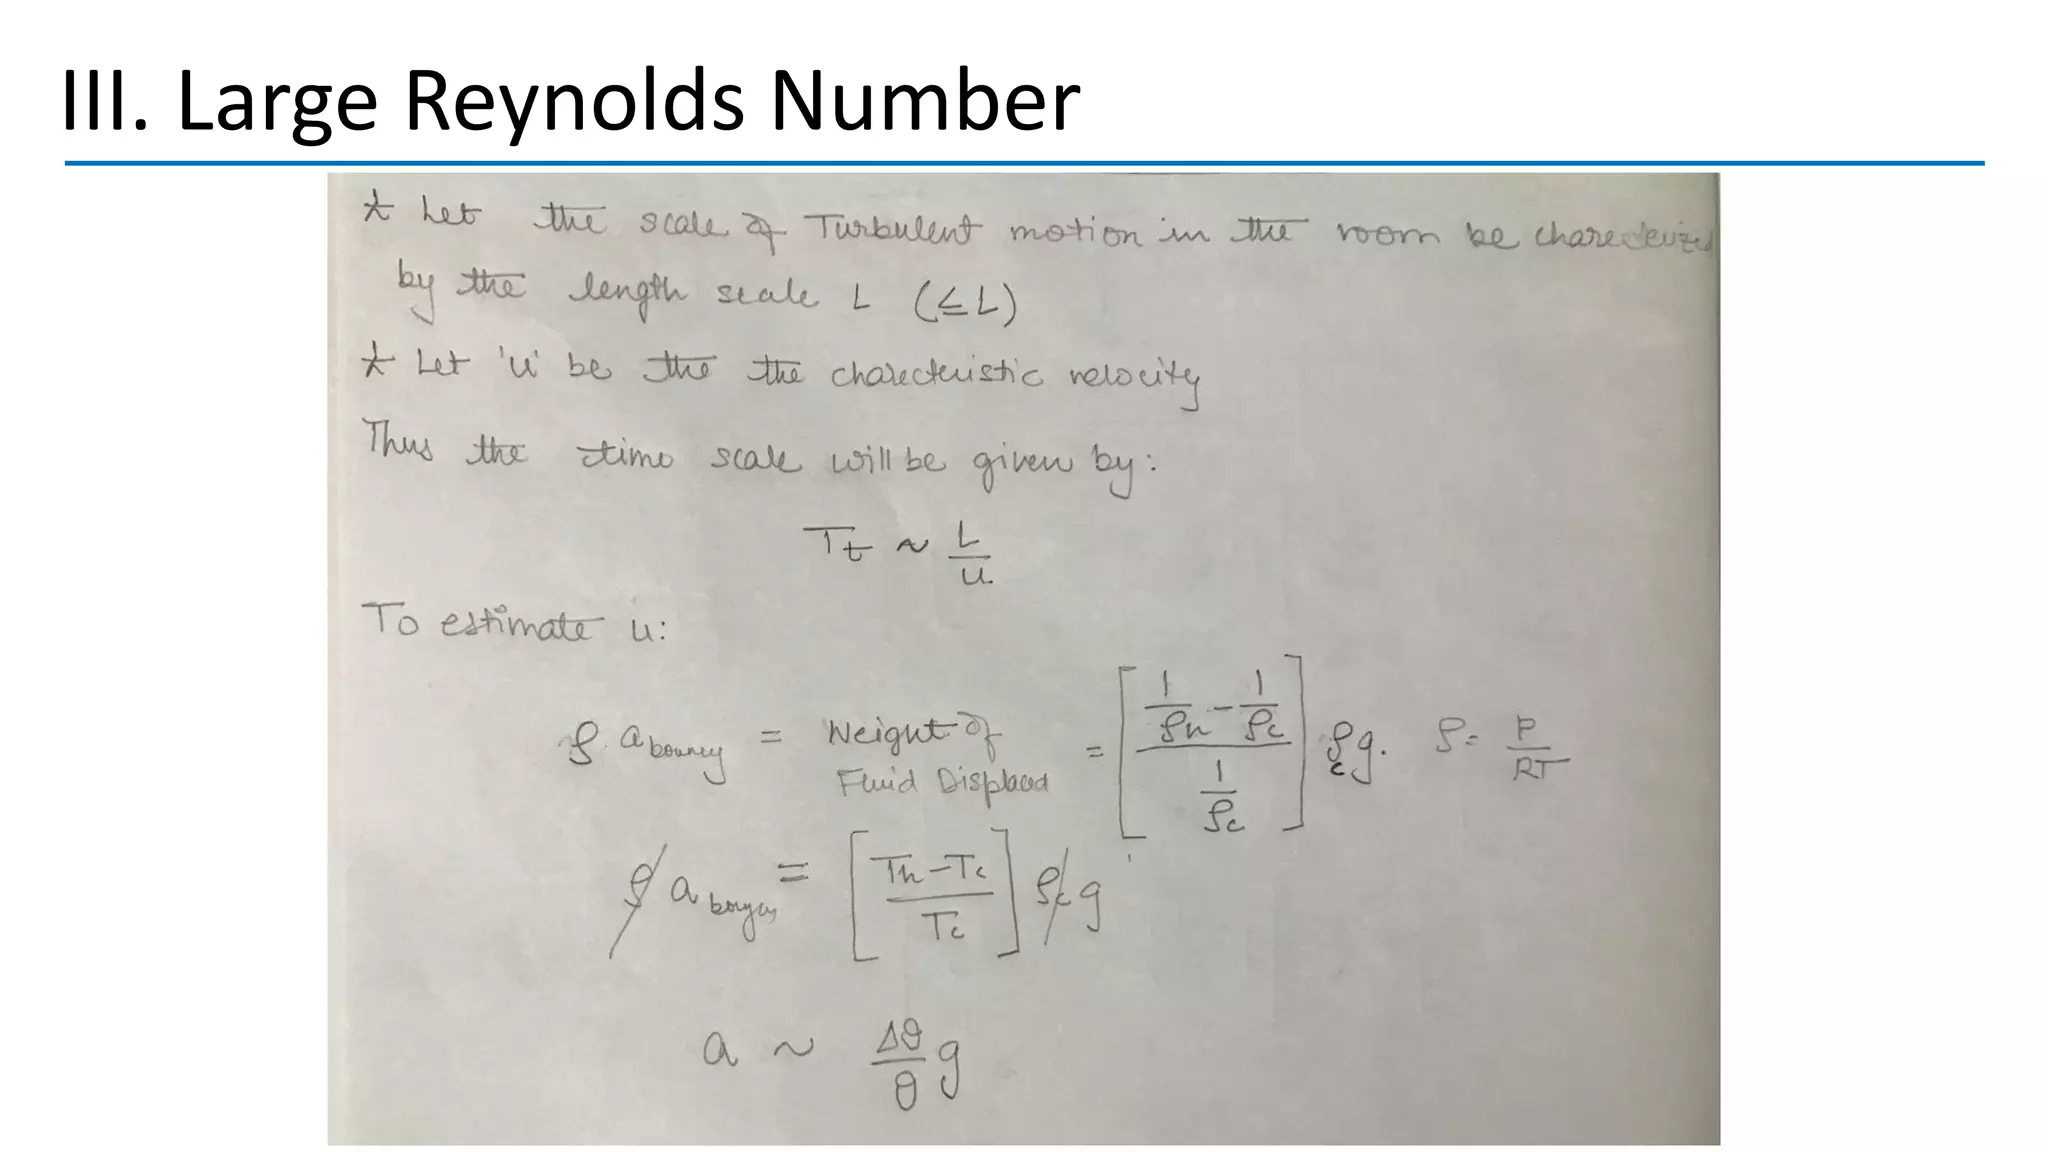 III. Large Reynolds Number
* Let the scale of Turbulent motion in the room be charecterized
by the length scale L (≤L)
* Let 'u' be the the charecteristic velocity
Thus the time scale will be given by:
T_t ~ L/u.
To estimate u:
ρ a = Weight of Fluid Displaced = [(1/ρ_h - 1/ρ_c)/(1/ρ_c)] ρ_c g. ρ = P/RT
ρ a = [(T_h - T_c)/T_c] ρ_c g
a ~ Δθ/θ g